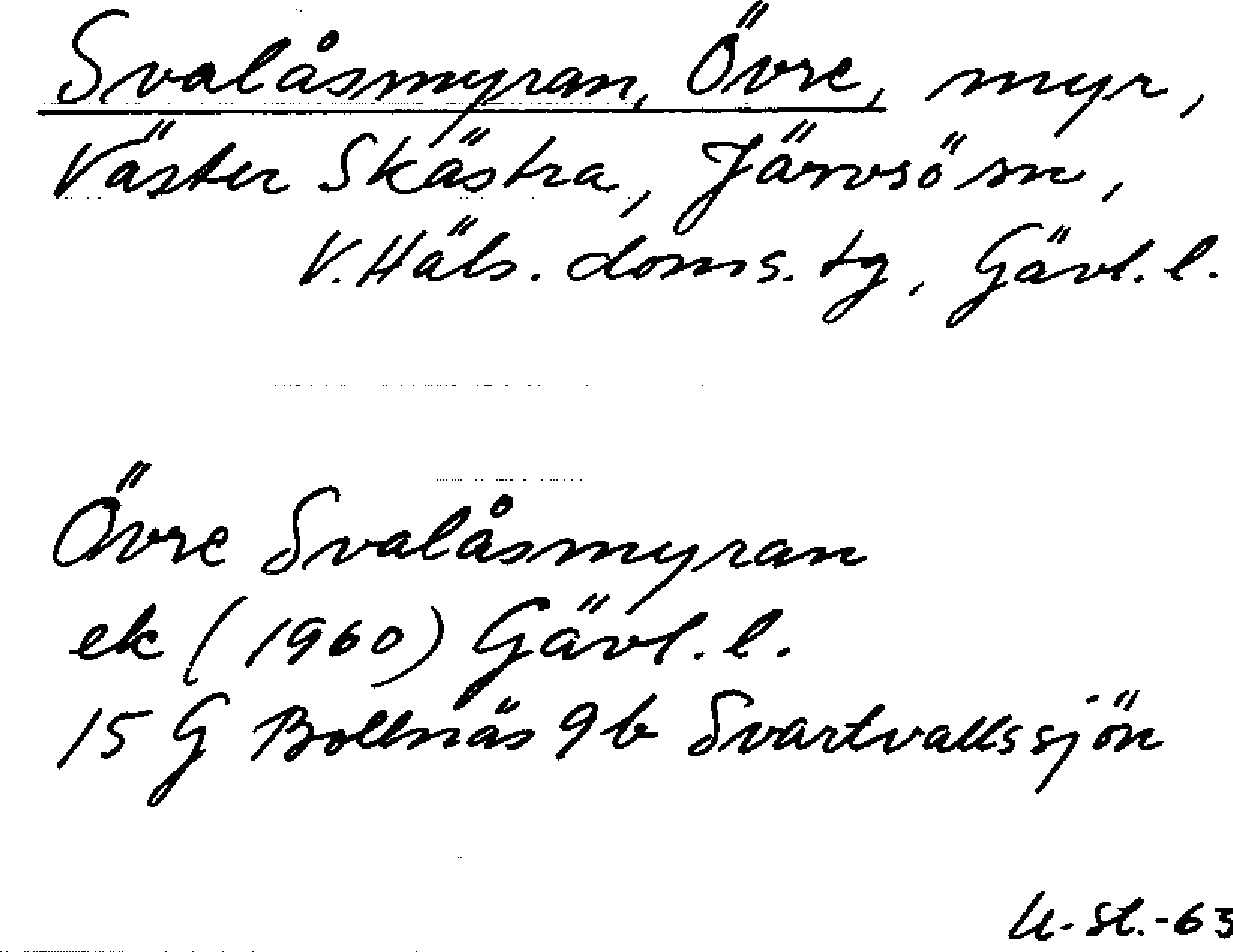 Svalåsmyran, Övre, myr,
Väster Skästra, Järvsö sn,
V. Häls. doms. tg, Gävl. l.
Övre Svalåsmyran
ek (1960) Gävl. l.
15 G Bollnäs 9 b Svartvallssjön
U. St. -63